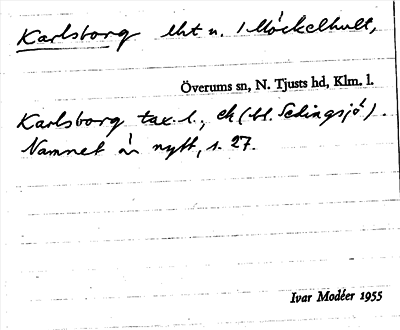 Karlsborg lht u. 1 Möckelhult,
Överums sn, N. Tjusts hd, Klm. l.
Karlsborg tax.l., ek (bl. Sedingsjö).
Namnet är nytt, s. 27.
Ivar Modéer 1955